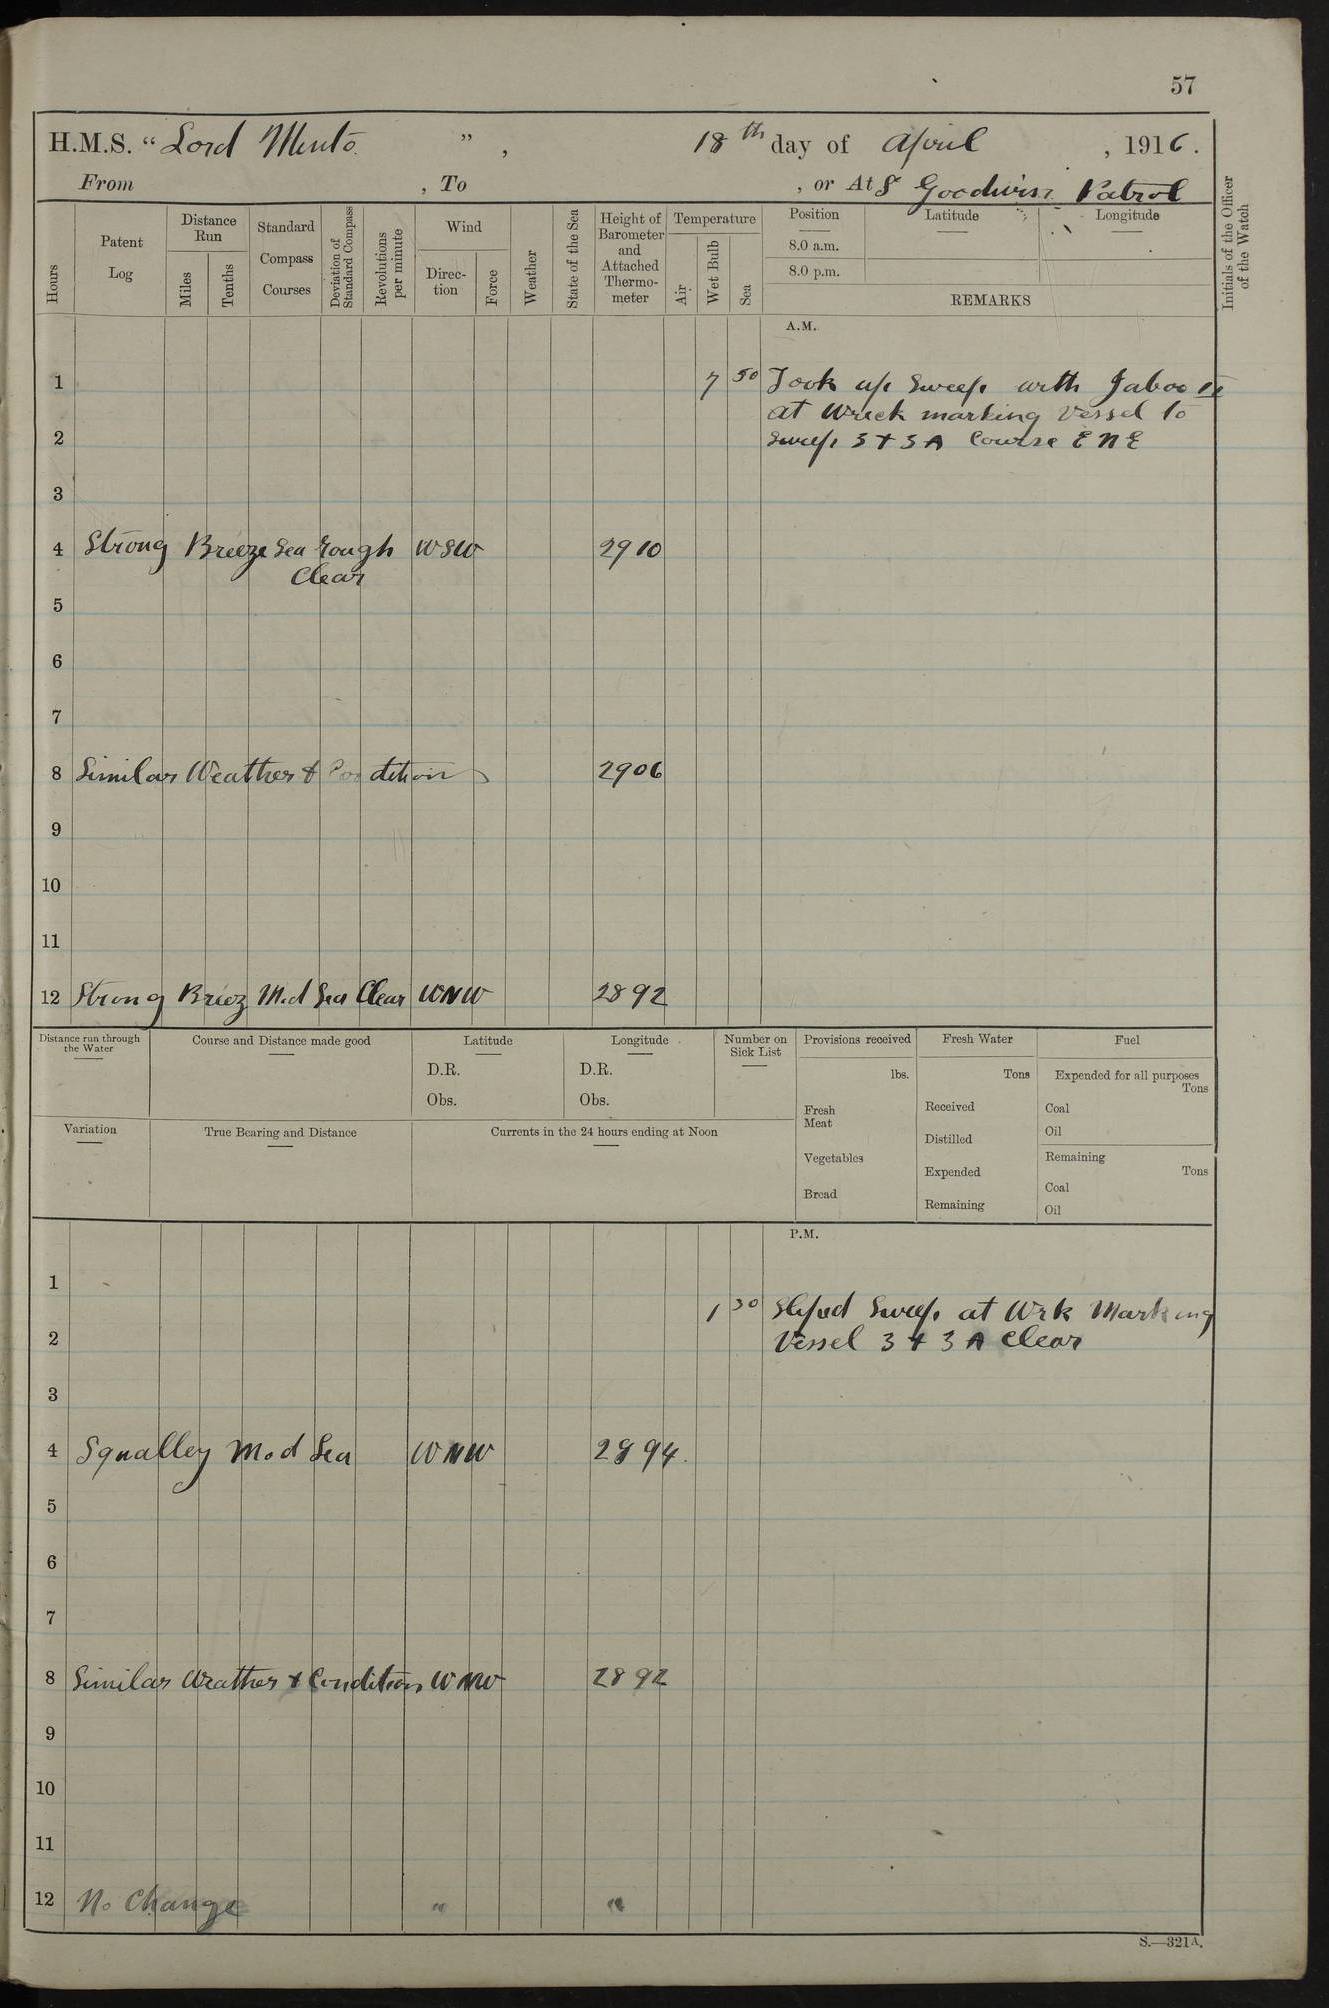 57
H.M.S. “Lord Minto ”, 18th day of April , 1916.
From , To , or At S Goodwin Patrol
Hours
Patent Log
Distance Run
Miles
Tenths
Standard Compass Courses
Deviation of Standard Compass
Revolutions per minute
Wind
Direc-tion
Force
Weather
State of the Sea
Height of Barometer and Attached Thermo-meter
Temperature
Air
Wet Bulb
Sea
Position
8.0 a.m.
8.0 p.m.
Latitude
Longitude
REMARKS
Initials of the Officer of the Watch
A.M.
1 7 50 Took up Sweep with Jaboo II
at Wreck marking Vessel to
2 Sweep 3 & 3A Course E N E
3
4 Strong Breeze Sea rough WSW 2910
Clear
5
6
7
8 Similar Weather & Condition 2906
9
10
11
12 Strong Briez Mod Sea Clear WNW 2892
Distance run through the Water
Course and Distance made good
Latitude
D.R.
Obs.
Longitude
D.R.
Obs.
Number on Sick List
Provisions received
lbs.
Fresh Meat
Vegetables
Bread
Fresh Water
Tons
Received
Distilled
Expended
Remaining
Fuel
Expended for all purposes
Tons
Coal
Oil
Remaining
Tons
Coal
Oil
Variation
True Bearing and Distance
Currents in the 24 hours ending at Noon
P.M.
1
1 30 Sliped Sweep at Wrk Marking
2 Vessel 3 & 3 A Clear
3
4 Squalley Mod Sea WNW 2894.
5
6
7
8 Similar Weather & Condition WNW 2892
9
10
11
12 No Change " "
S.—321A.